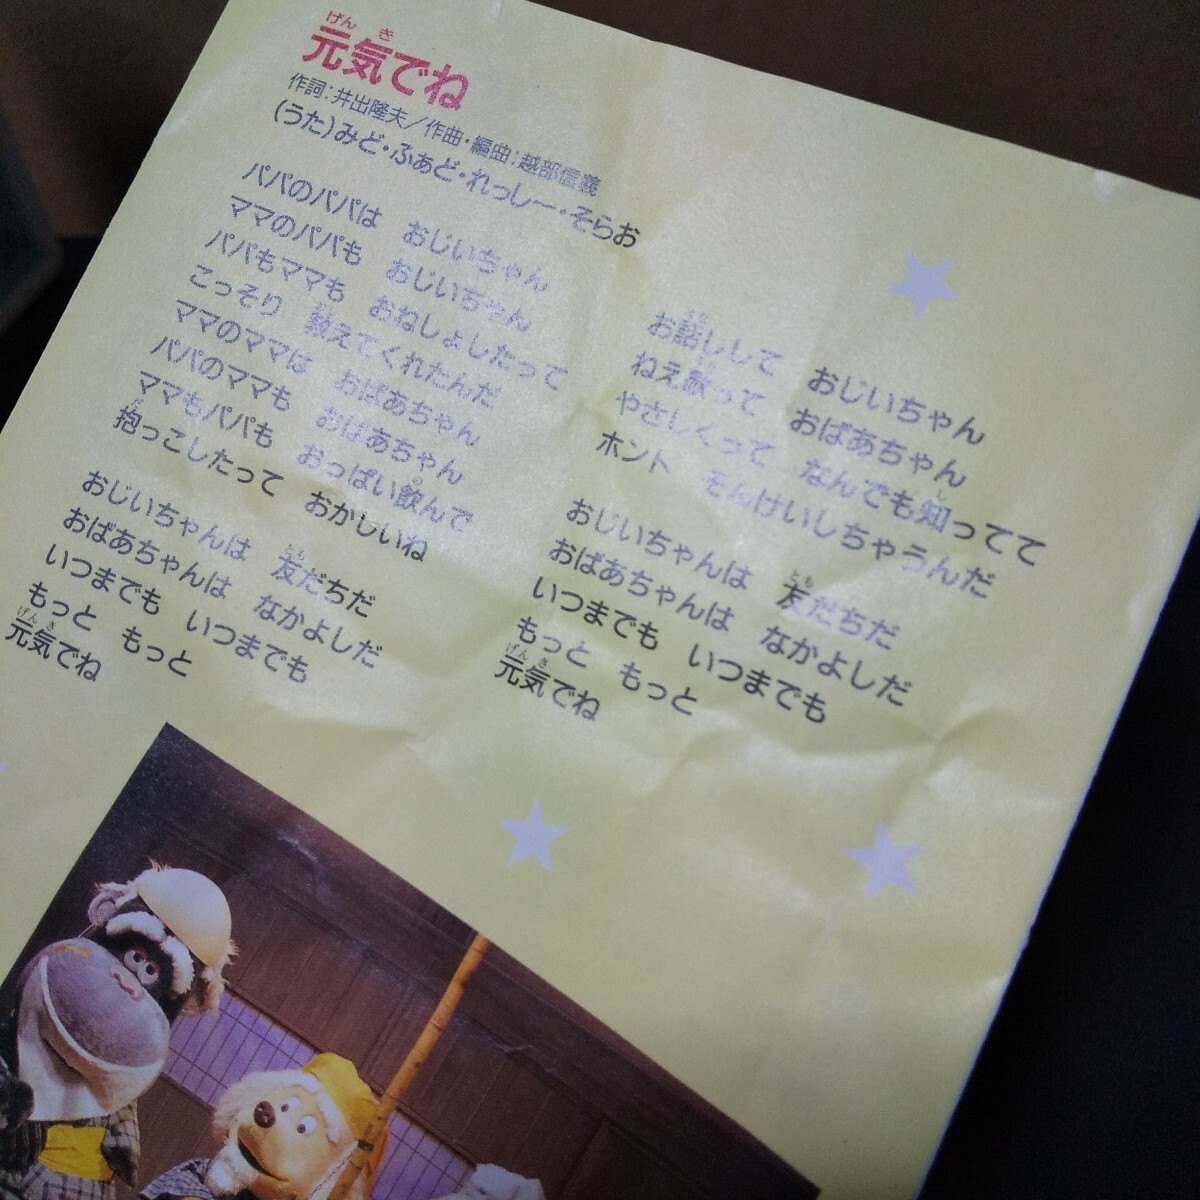 元気でね
作詞:井出隆夫/作曲・編曲:越部信義
(うた)みど・ふぁど・れっしー・そらお
パパのパパは おじいちゃん
ママのパパも おじいちゃん
パパもママも おねしょしたって
こっそり 教えてくれたんだ
ママのママは おばあちゃん
パパのママも おばあちゃん
ママもパパも おっぱい飲んで
抱っこしたって おかしいね
おじいちゃんは 友だちだ
おばあちゃんは なかよしだ
いつまでも いつまでも
もっと もっと
元気でね
お話しして おじいちゃん
ねえ歌って おばあちゃん
やさしくって なんでも知ってて
ホント そんけいしちゃうんだ
おじいちゃんは 友だちだ
おばあちゃんは なかよしだ
いつまでも いつまでも
もっと もっと
元気でね